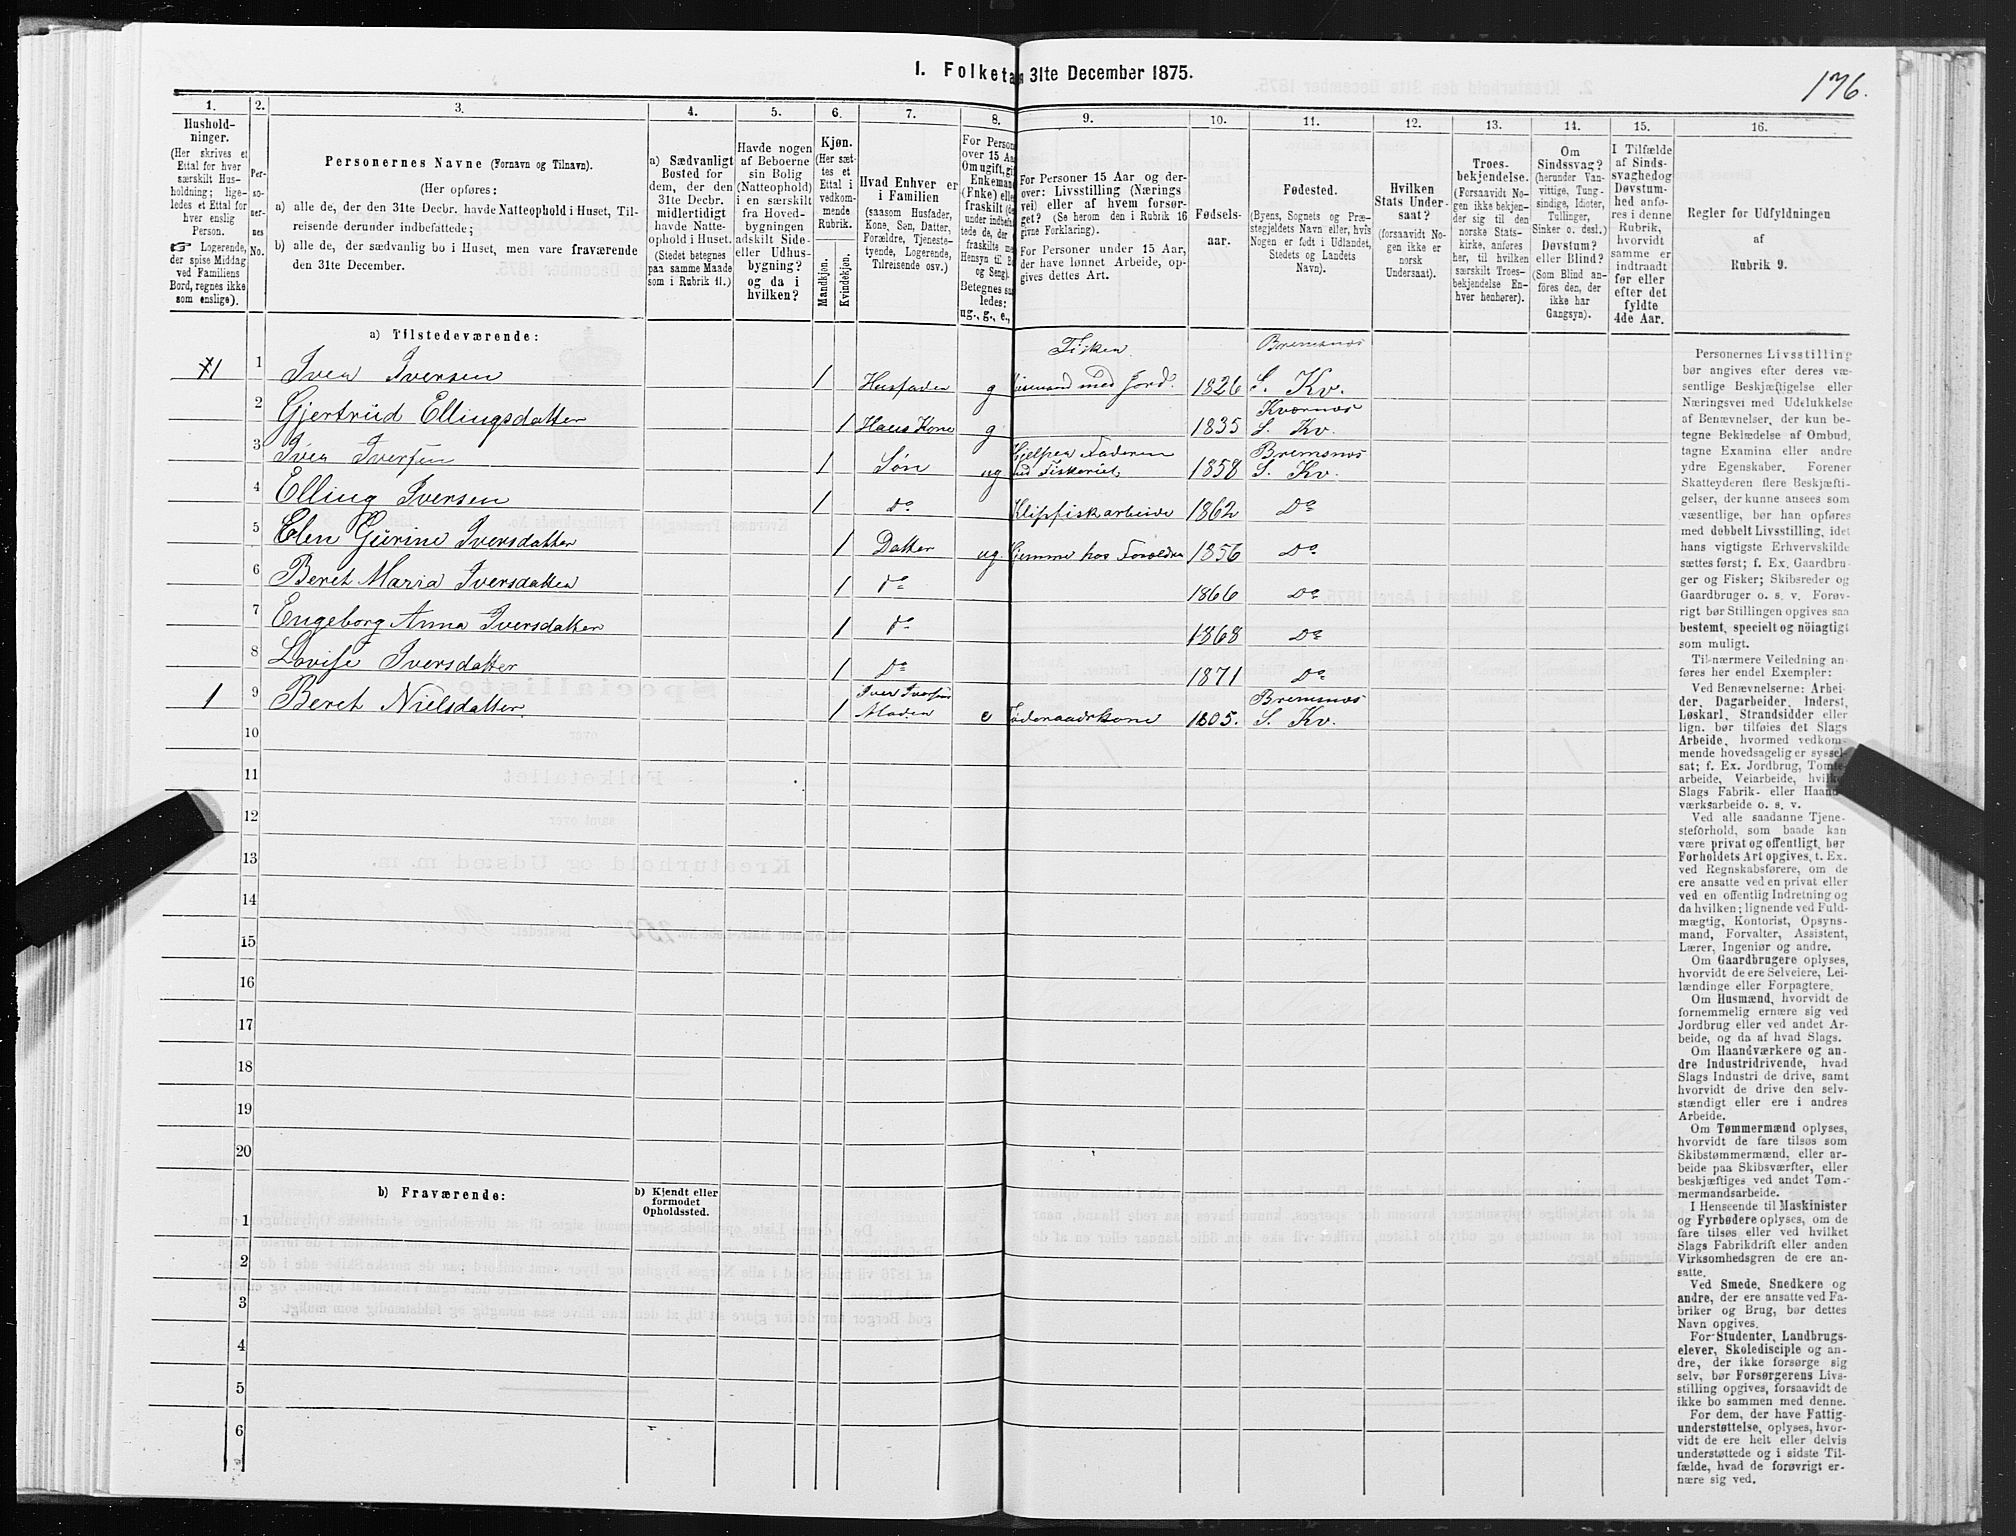 1. Folketa 31te December 1875.
176.
1.
2.
3.
4.
5.
6.
7.
8.
9.
10.
11.
12.
13.
14.
15.
16.
Hushold-
ninger.
(Her skrives et
Ettal for hver
særskilt Hus-
holdning; lige-
ledes et Ettal for
hver enslig
Person.
☞ Logerende,
der spise Middag
ved Familiens
Bord, regnes ikke
som enslige).
Per-
so-
ner-
nes
No.
Personernes Navne (Fornavn og Tilnavn).
(Her opføres:
a) alle de, der den 31te Decbr. havde Natteophold i Huset, Til-
reisende derunder indbefattede;
b) alle de, der sædvanlig bo i Huset, men vare fraværende
den 31te December.
a) Sædvanligt
Bosted for
dem, der den
31te Decbr.
midlertidigt
havde Natte-
ophold i Huset.
(Stedet betegnes
paa samme Maade
som i Rubrik 11.)
Havde nogen
af Beboerne
sin Bolig
(Natteophold)
i en særskilt
fra Hoved-
bygningen
adskilt Side-
eller Udhus-
bygning?
og da i
hvilken?
Kjøn.
(Her sæt-
tes et
Ettal i
vedkom-
mende
Rubrik.
Mandkjøn.
Kvindekjøn.
Hvad Enhver er
i Familien
(saasom Husfader,
Kone, Søn, Datter,
Forældre, Tjeneste-
tyende, Logerende,
Tilreisende osv.)
For Person
over 15 Aa
Om ugift, gi
Enkeman
(Enke) elle
fraskilt (de
under indbe
tede de, der
fraskilte me
Hensyn til B
og Seng).
Betegnes saa
ledes:
ug., g., e.,
For Personer 15 Aar og der-
over: Livsstilling (Nærings
vei) eller af hvem forsør-
get? (Se herom den i Rubrik 16
givne Forklaring).
For Personer under 15 Aar,
der have lønnet Arbeide, op-
gives dettes Art.
Fødsels-
aar.
Fødested.
(Byens, Sognets og Præ-
stegjeldets Navn eller, hvis
Nogen er født i Udlandet,
Stedets og Landets
Navn).
Hvilken
Stats Under-
saat?
(forsaavidt No-
gen ikke er
norsk
Undersaat).
Troes-
bekjendelse.
(Forsaavidt No-
gen ikke bekjen-
der sig til den
norske Stats-
kirke, anføres
her, til hvilken
særskilt Troes-
bekjendelse En-
hver henhører).
Om
Sindssvag?
(herunder Van-
vittige, Tung-
sindige, Idioter,
Tullinger,
Sinker o. desl.)
Døvstum?
eller Blind?
(Som Blind an-
føres den, der
ikke har
Gangsyn).
I Tilfælde
af Sinds-
svaghed og
Døvstum-
hed anfø-
res i denne
Rubrik,
hvorvidt
samme er
indtraadt
før eller
efter det
fyldte
4de Aar.
Regler for Udfyldningen
af
Rubrik 9.
a) Tilstedeværende:
1 1 Iver Iversen 1 Husfader g Fisker Husmand med Jord. 1826 Bremsnæs S. Kv.
2 Gjertrud Ellingsdatter 1 Hans Kone g 1835 Kværnæs S. Kv.
3 Iver Iversen 1 Søn ug Hjelper Faderen ved Fiskeriet, 1858 Bremsnæs S. Kv.
4 Elling Iversen 1 do Klipfiskarbeide 1862 Do
5 Elen Gurine Iversdatter 1 Datter ug. Hjemme hos Forældre 1856 Do
6 Beret Maria Iversdatter 1 do 1866 Do
7 Engeborg Anna Iversdatter 1 do 1868 Do
8 Lovise Iversdatter 1 Do 1871 Do
1 9 Beret Nielsdatter. 1 Iver Iversens Moder e Føderaadskone 1805. Bremsnæs S. Kv.
10
11
12
13
14
15
16
17
18
19
20
b) Fraværende:
b) Kjendt eller
formodet
Opholdssted.
1
2
3
4
5
6
Personernes Livsstilling
bør angives efter deres væ-
sentlige Beskjæftigelse eller
Næringsvei med Udelukkelse
af Benævnelser, der kun be-
tegne Beklædelse af Ombud,
tagne Examina eller andre
ydre Egenskaber. Forener
Skatteyderen flere Beskjæfti-
gelser, der kunne ansees som
væsentlige, bør han opføres
med dobbelt Livsstilling, idet
hans vigtigste Erhvervskilde
sættes først; f. Ex. Gaardbru-
ger og Fisker; Skibsreder og
Gaardbruger o. s. v. Forøv-
rigt bør Stillingen opgives saa
bestemt, specielt og nøiagtigt
som muligt.
Til nærmere Veiledning an-
føres her endel Exempler:
Ved Benævnelserne: Arbei-
der, Dagarbeider, Inderst,
Løskarl, Strandsidder eller
lign. bør tilføies det Slags
Arbeide, hvormed vedkom-
mende hovedsagelig er syssel-
sat; f. Ex. Jordbrug, Tomte-
arbeide, Veiarbeide, hvilke
Slags Fabrik- eller Haand-
værksarbeide o. s. v.
Ved alle saadanne Tjene-
steforhold, som baade kan
være privat og offentligt, bør
Forholdets Art opgives, t. Ex.
ved Regnskabsførere, om de
ere ansatte ved en privat eller
ved en offentlig Indretning og
da hvilken; lignende ved Fuld-
mægtig, Kontorist, Opsyns-
mand, Forvalter, Assistent,
Lærer, Ingeniør og andre.
Om Gaardbrugere oplyses,
hvorvidt de ere Selveiere, Lei-
lændinge eller Forpagtere.
Om Husmænd, hvorvidt de
fornemmelig ernære sig ved
Jordbrug eller ved andet Ar-
beide, og da af hvad Slags.
Om Haandværkere og an-
dre Industridrivende, hvad
Slags Industri de drive, samt
hvorvidt de drive den selv-
stændigt eller ere i andres
Arbeide.
Om Tømmermænd oplyses,
hvorvidt de fare tilsøs som
Skibstømmermænd, eller ar-
beide paa Skibsværfter, eller
beskjæftiges ved andet Tøm-
mermandsarbeide.
I Henseende til Maskinister
og Fyrbødere oplyses, om de
fare tilsøs eller ved hvilket
Slags Fabrikdrift eller anden
Virksomhedsgren de ere an-
satte.
Ved Smede, Snedkere og
andre, der ere ansatte ved Fa-
briker og Brug, bør dettes
Navn opgives.
For Studenter, Landbrugs-
elever, Skoledisciple og an-
dre, der ikke forsørge sig
selv, bør Forsørgerens Livs-
stilling opgives, forsaavidt de
ikke bo sammen med denne.
For dem, der have Fattig-
understøttelse, oplyses, hvor-
vidt de ere helt eller delvis
understøttede og i sidste Til-
fælde, hvad de forøvrigt er-
nære sig ved.